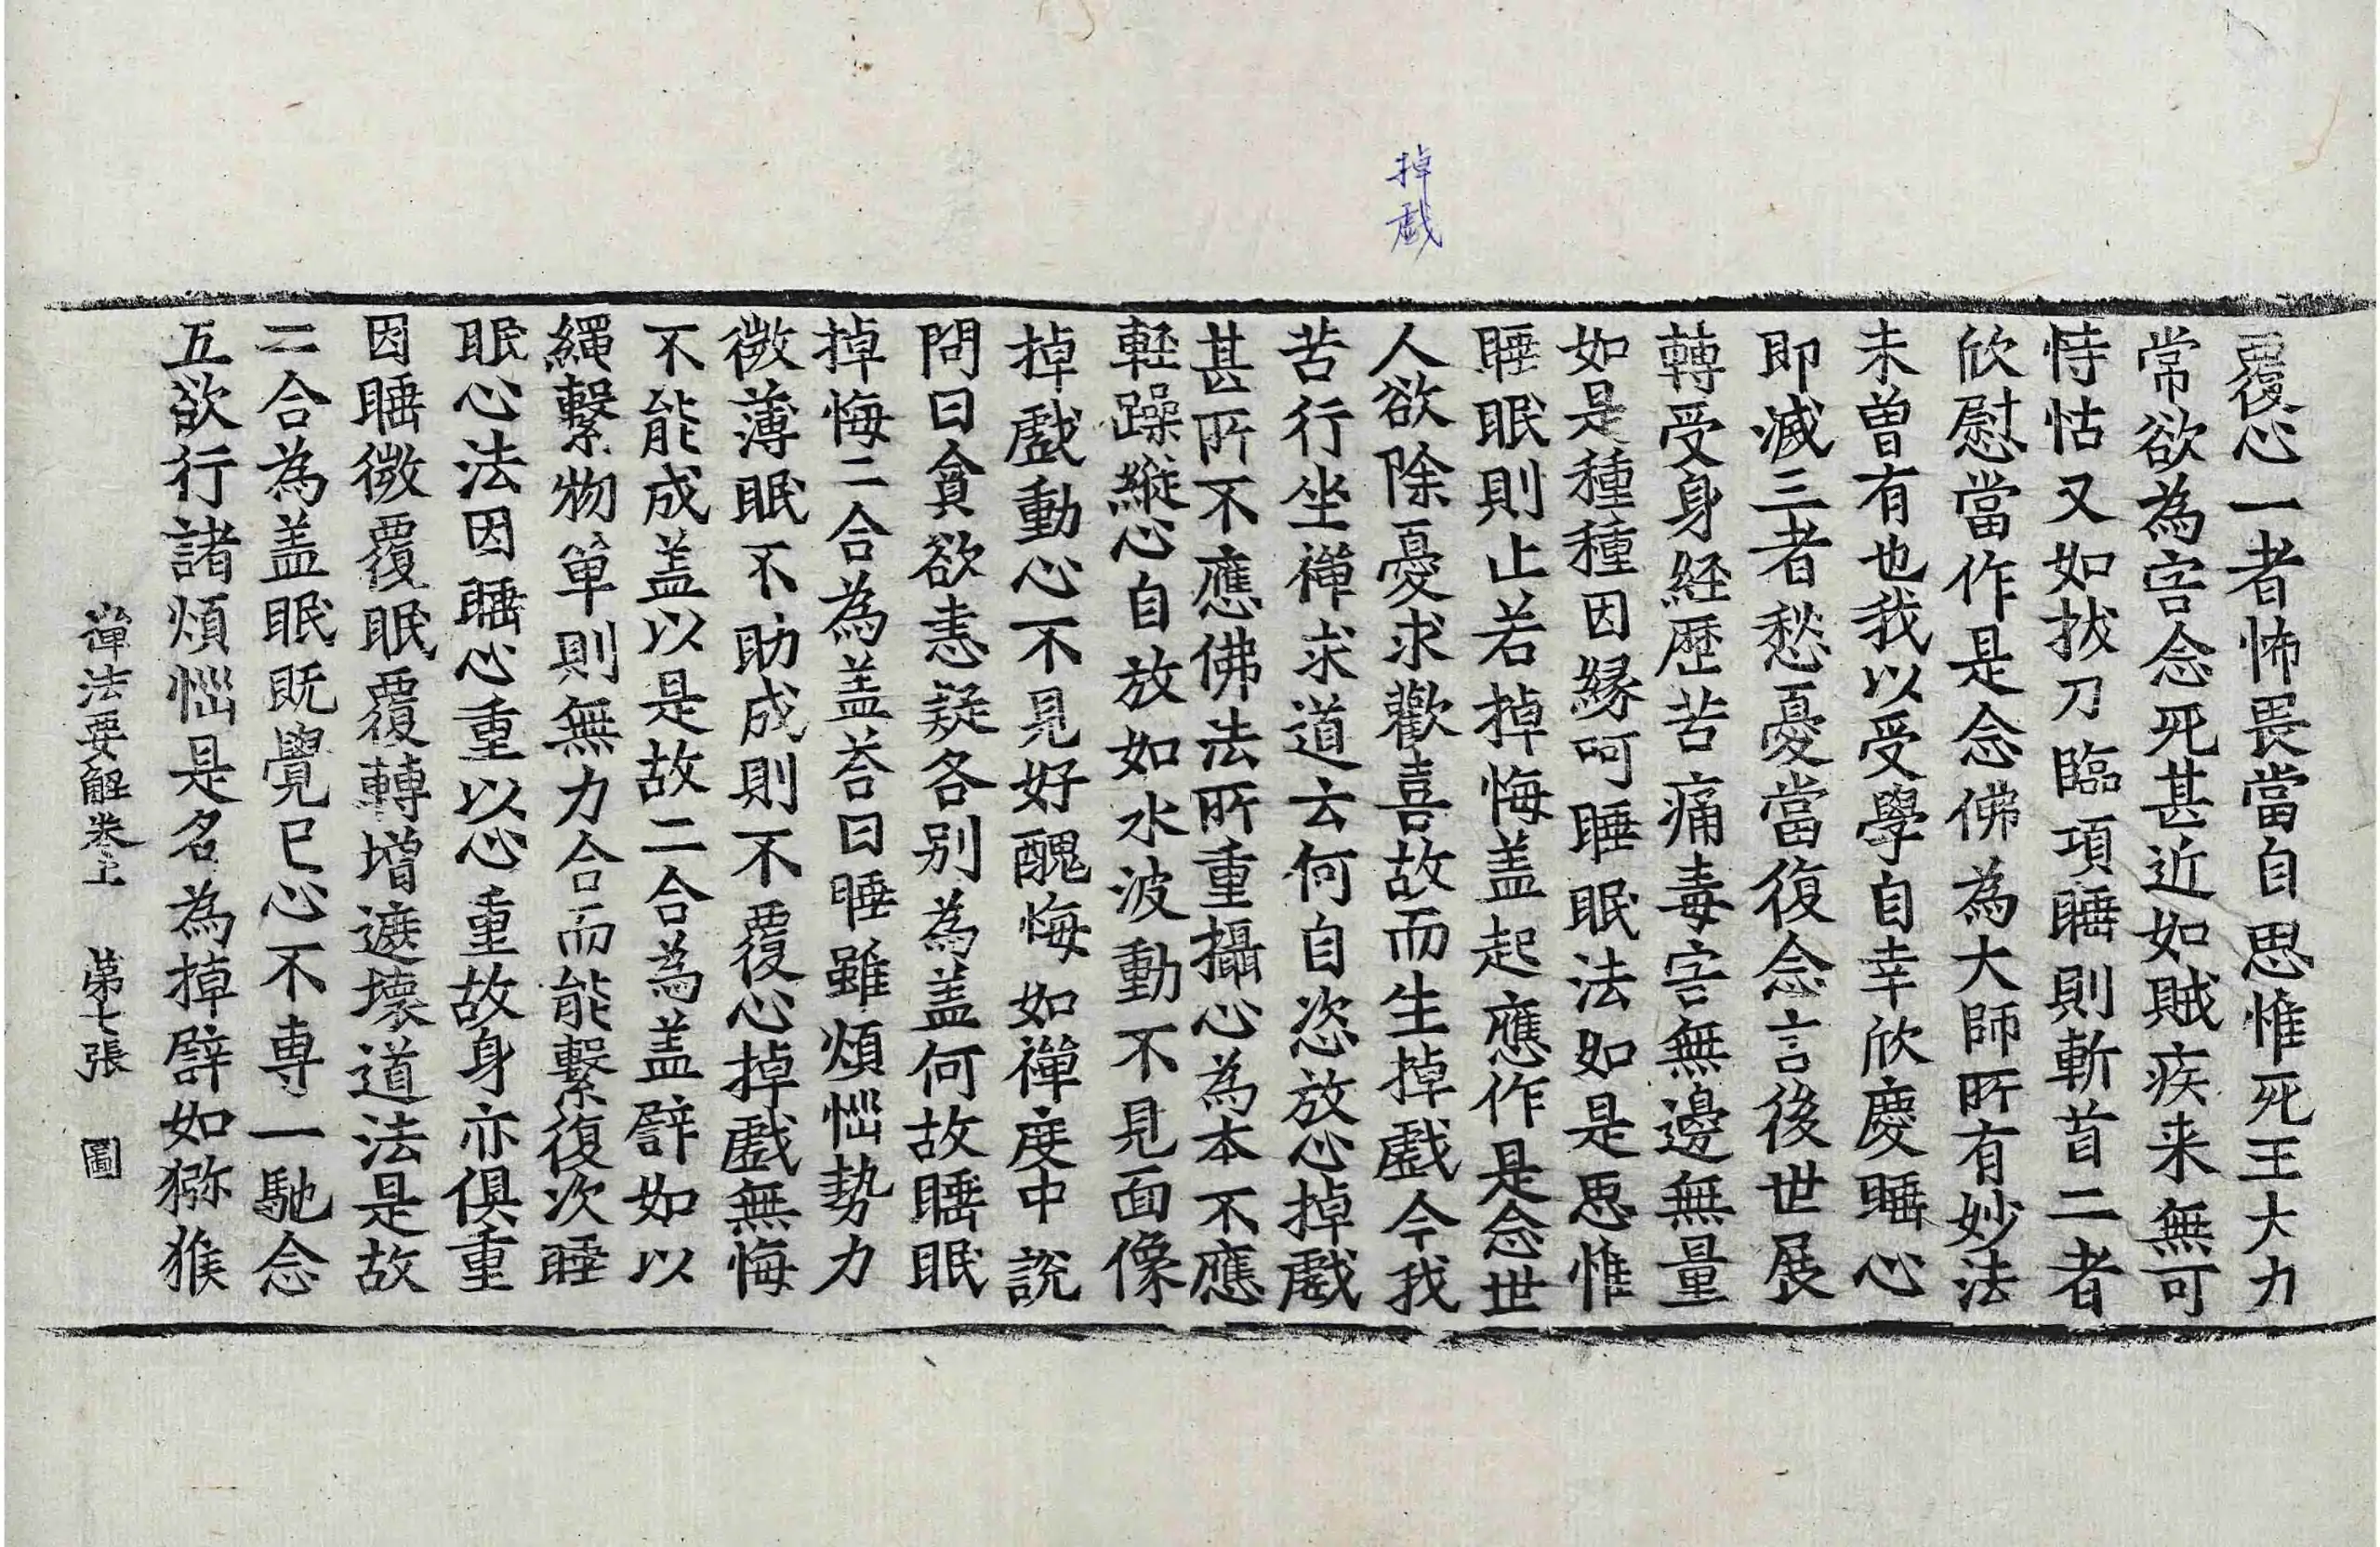 掉戲
覆心一者怖畏當自思惟死王大力
常欲為害念死甚近如賊疾来無可
恃怙又如拔刀臨項睡則斬首二者
欣慰當作是念佛為大師所有妙法
未曽有也我以受學自幸欣慶睡心
即滅三者愁憂當復念言後世展
轉受身経歷苦痛毒害無邊無量
如是種種因縁呵睡眠法如是思惟
睡眠則止若掉悔盖起應作是念世
人欲除憂求歡喜故而生掉戲今我
苦行坐禅求道云何自恣放心掉戲
甚所不應佛法所重攝心為本不應
軽躁縱心自放如水波動不見面像
掉戲動心不見好醜悔如禅度中說
問曰貪欲恚疑各別為盖何故睡眠
掉悔二合為盖荅曰睡雖煩惱勢力
微薄眠不助成則不覆心掉戲無悔
不能成盖以是故二合為盖譬如以
繩繫物單則無力合而能繫復次睡
眠心法因睡心重以心重故身亦俱重
因睡微覆眠覆轉增遮壞道法是故
二合為盖眠既覺已心不専一馳念
五欲行諸煩惱是名為掉譬如猕猴
禅法要解卷上　第七張　圖